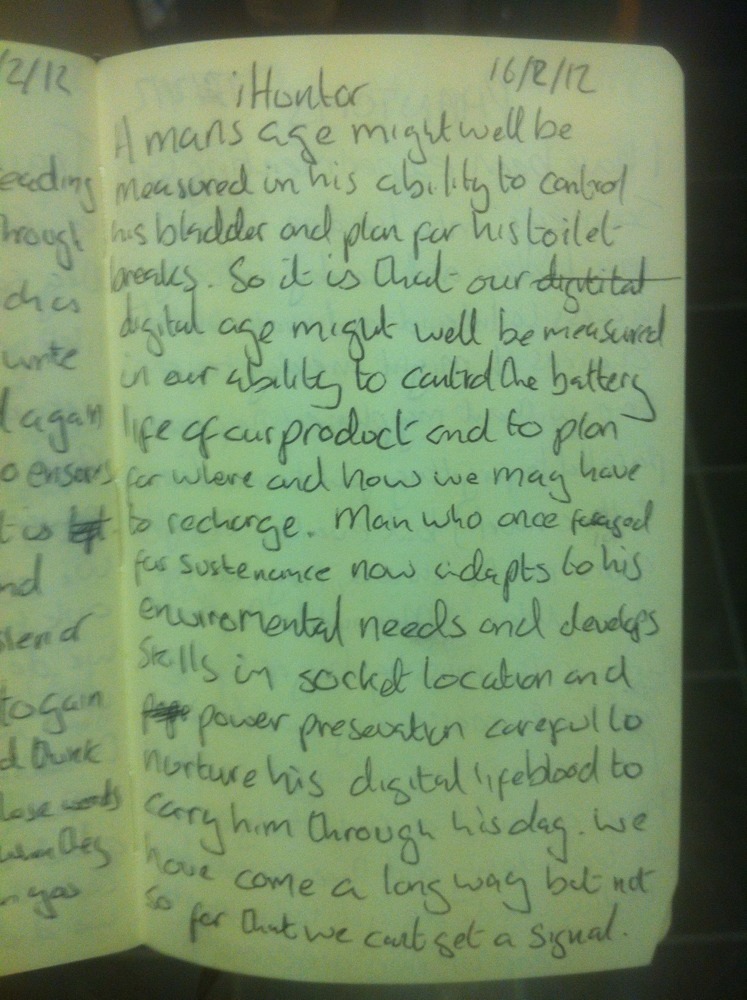 2/12
eading
hrough
ch as
write
d again
o ensors
t is
nd
slend
to gain
d Think
lose words
when they
n you
iHuntor 16/2/12
A mans age might well be
measured in his ability to control
his bladder and plan for his toilet
breaks. So it is that our digtital
digital age might well be measured
in our ability to control the battery
life of our product and to plan
for where and how we may have
to recharge. Man who once foraged
for sustenance now adapts to his
enviromental needs and develops
skills in socket location and
power preservation careful to
nurture his digital lifeblood to
carry him through his day. We
have come a long way but not
so far that we cant get a signal.